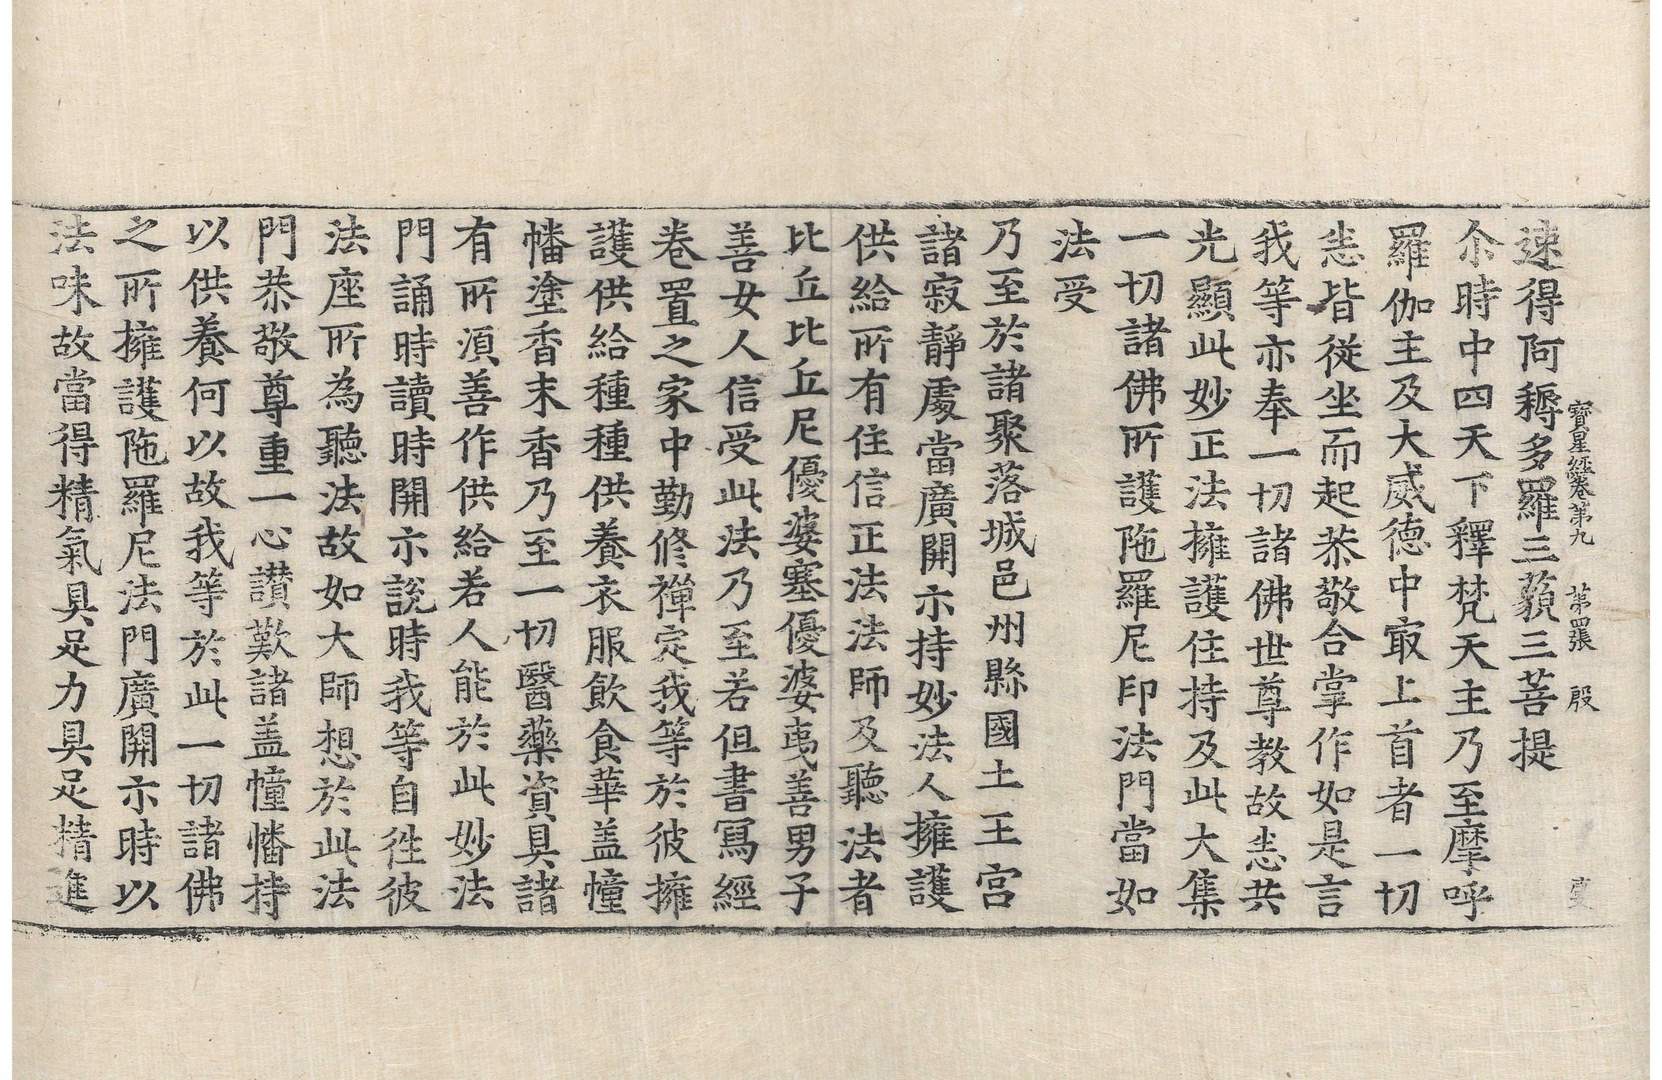 寶星經卷第九 第四張 殷
速得阿耨多羅三藐三菩提
尒時中四天下釋梵天主乃至摩呼
羅伽主及大威德中㝡上首者一切
悉皆從坐而起恭敬合掌作如是言
我等亦奉一切諸佛世尊教故悉共
光顯此妙正法擁護住持及此大集
一切諸佛所護陁羅尼印法門當如
法受
乃至於諸聚落城邑州縣國土王宫
諸寂靜處當廣開示持妙法人擁護
供給所有住信正法法師及聽法者
比丘比丘尼優婆塞優婆夷善男子
善女人信受此法乃至若但書寫經
卷置之家中勤修禪定我等於彼擁
護供給種種供養衣服飲食華盖幢
幡塗香末香乃至一切醫藥資具諸
有所湏善作供給若人能於此妙法
門誦時讀時開示說時我等自徃彼
法座所為聽法故如大師想於此法
門恭敬尊重一心讃歎諸盖幢幡持
以供養何以故我等於此一切諸佛
之所擁護陁羅尼法門廣開示時以
法味故當得精氣具足力具足精進